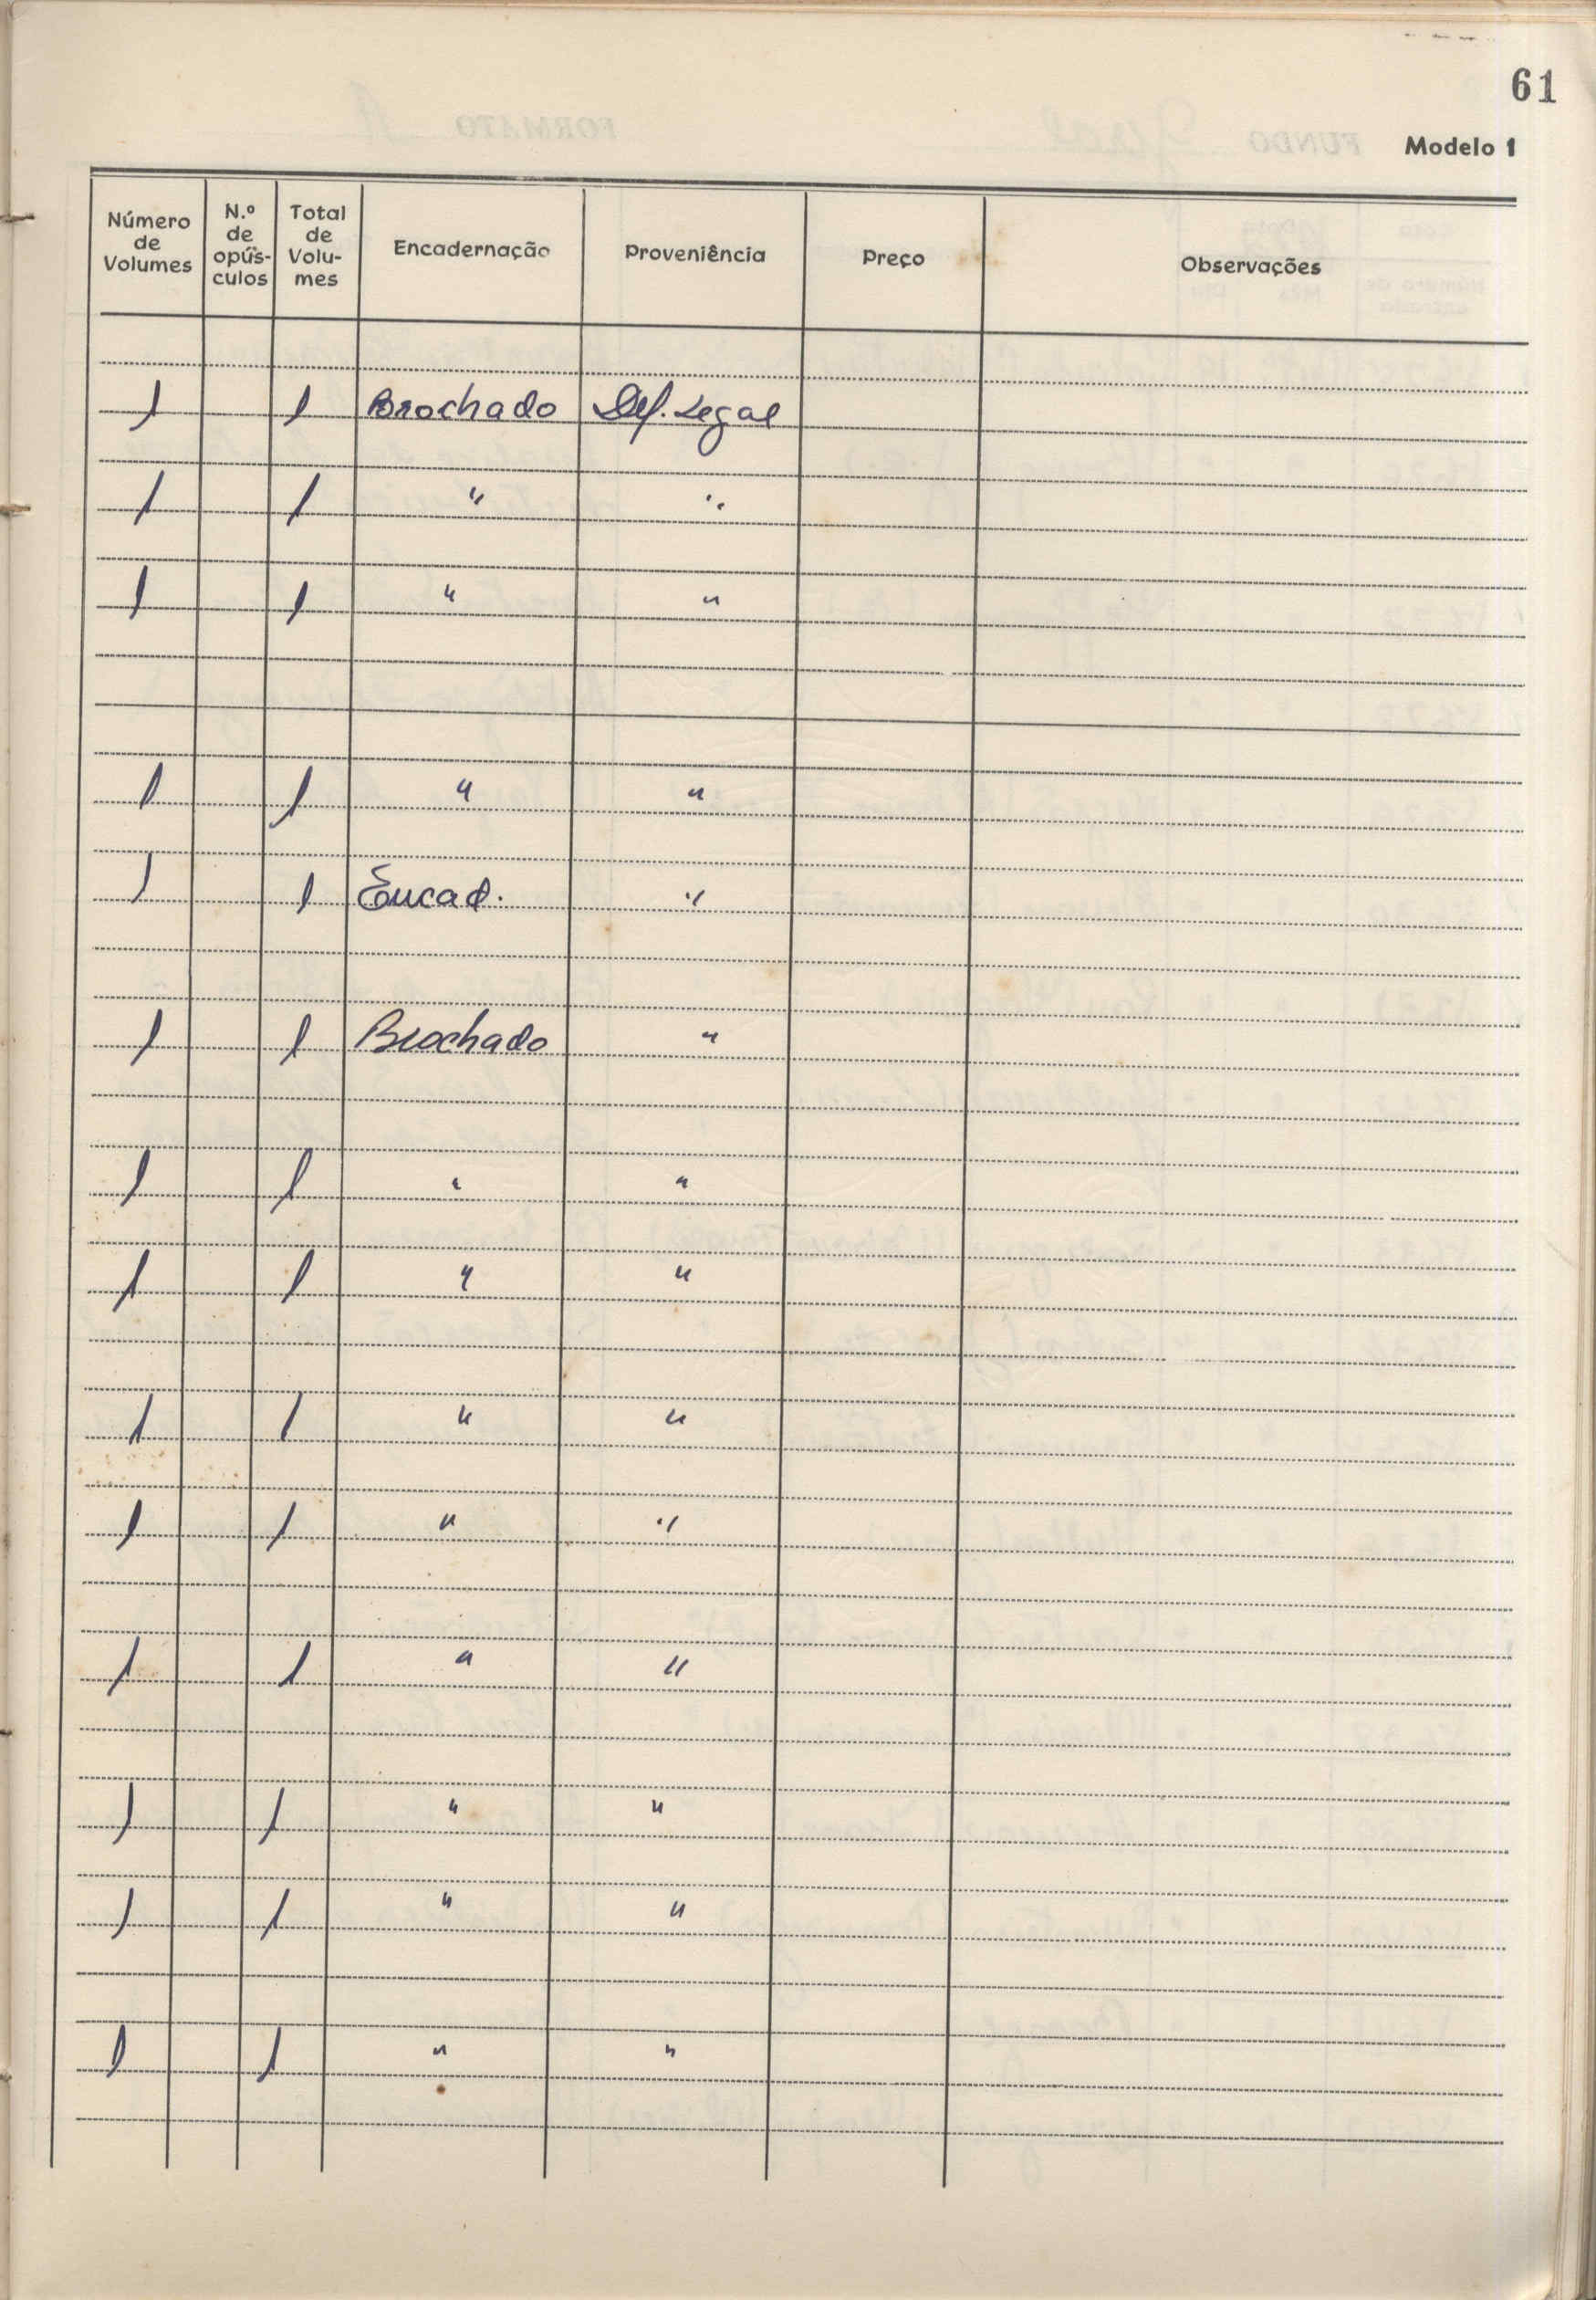 61
Modelo 1
Número de Volumes | N.º de opús-culos | Total de Volu-mes | Encadernação | Proveniência | Preço | Observações
1 | | 1 | Brochado | Dep. Legal
1 | | 1 | " | "
1 | | 1 | " | "
1 | | 1 | " | "
1 | | 1 | Encad. | "
1 | | 1 | Brochado | "
1 | | 1 | " | "
1 | | 1 | " | "
1 | | 1 | " | "
1 | | 1 | " | "
1 | | 1 | " | "
1 | | 1 | " | "
1 | | 1 | " | "
1 | | 1 | " | "